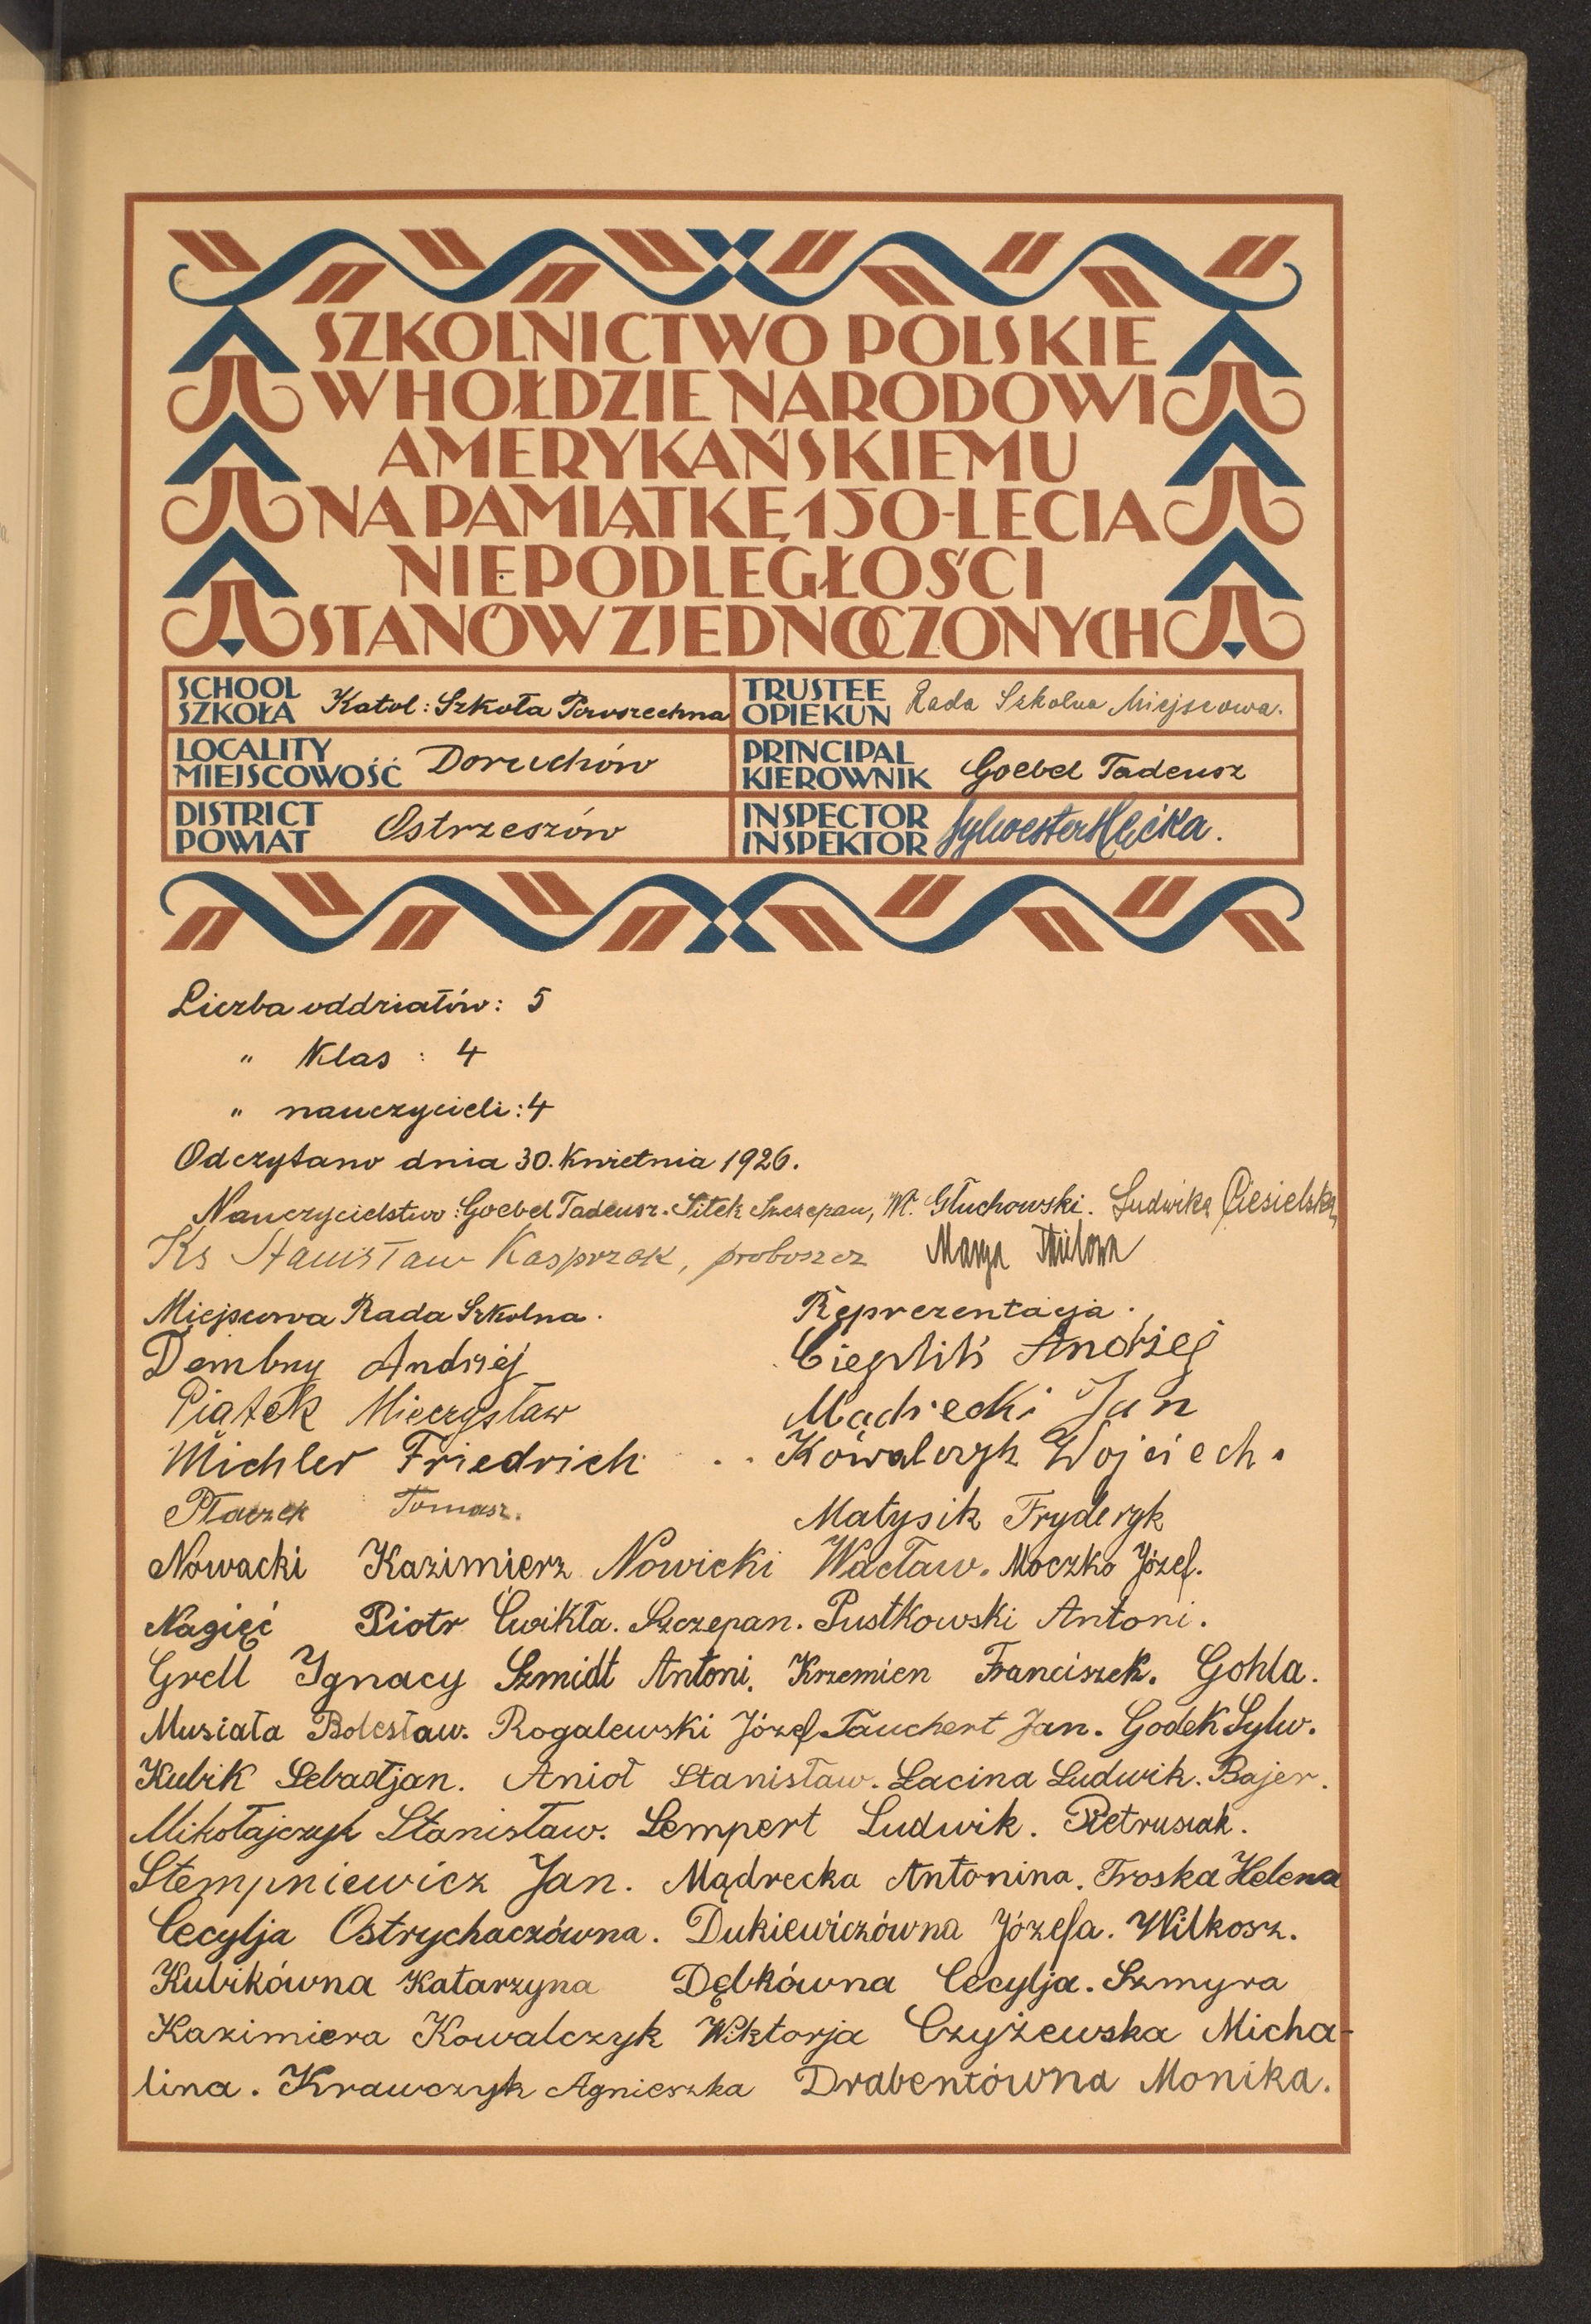 SZKOLNICTWO POLSKIE
W HOŁDZIE NARODOWI
AMERYKAŃSKIEMU
NA PAMIĄTKĘ 150-LECIA
NIEPODLEGŁOŚCI
STANÓW ZJEDNOCZONYCH
SCHOOL
SZKOŁA Katol: Szkoła Powszechna
TRUSTEE
OPIEKUN Rada Szkolna Miejscowa.
LOCALITY
MIEJSCOWOŚĆ Doruchów
PRINCIPAL
KIEROWNIK Goebel Tadeusz
DISTRICT
POWIAT Ostrzeszów
INSPECTOR
INSPEKTOR Sylwester
Liczba oddziałów: 5
" Klas : 4
" nauczycieli: 4
Odczytano dnia 30. Kwietnia 1926.
Nauczycielstwo: Goebel Tadeusz. Sitek Szczepan, W. Głuchowski. Ludwika Ciesielska,
Ks Stanisław Kasprzak, proboszcz Marya
Miejscowa Rada Szkolna. Reprezentacja.
Dembny Andrzéj Cieplik Andrzej
Piątek Mieczysław Mądrecki Jan
Michler Friedrich Kowalczyk Wojciech.
Ptaczek Tomasz. Matysik Fryderyk
Nowacki Kazimierz Nowicki Wacław. Moczko Józef.
Nagięć Piotr Ćwikła. Szczepan. Pustkowski Antoni.
Grell Ignacy Szmidt Antoni. Krzemien Franciszek. Gohla.
Musiała Bolesław. Rogalewski Józef Tauchert Jan. Godek Sylw.
Kubik Sebastjan. Anioł Stanisław. Łacina Ludwik. Bajer.
Mikołajczyk Stanisław. Lempert Ludwik. Pietrusiak.
Stempniewicz Jan. Mądrecka Antonina. Troska Helena
Cecylja Ostrychaczówna. Dukiewiczówna Józefa. Wilkosz.
Kubikówna Katarzyna Dębkówna Cecylja. Szmyra
Kazimiera Kowalczyk Wiktorja Czyżewska Micha-
lina. Krawczyk Agnieszka Drabentówna Monika.